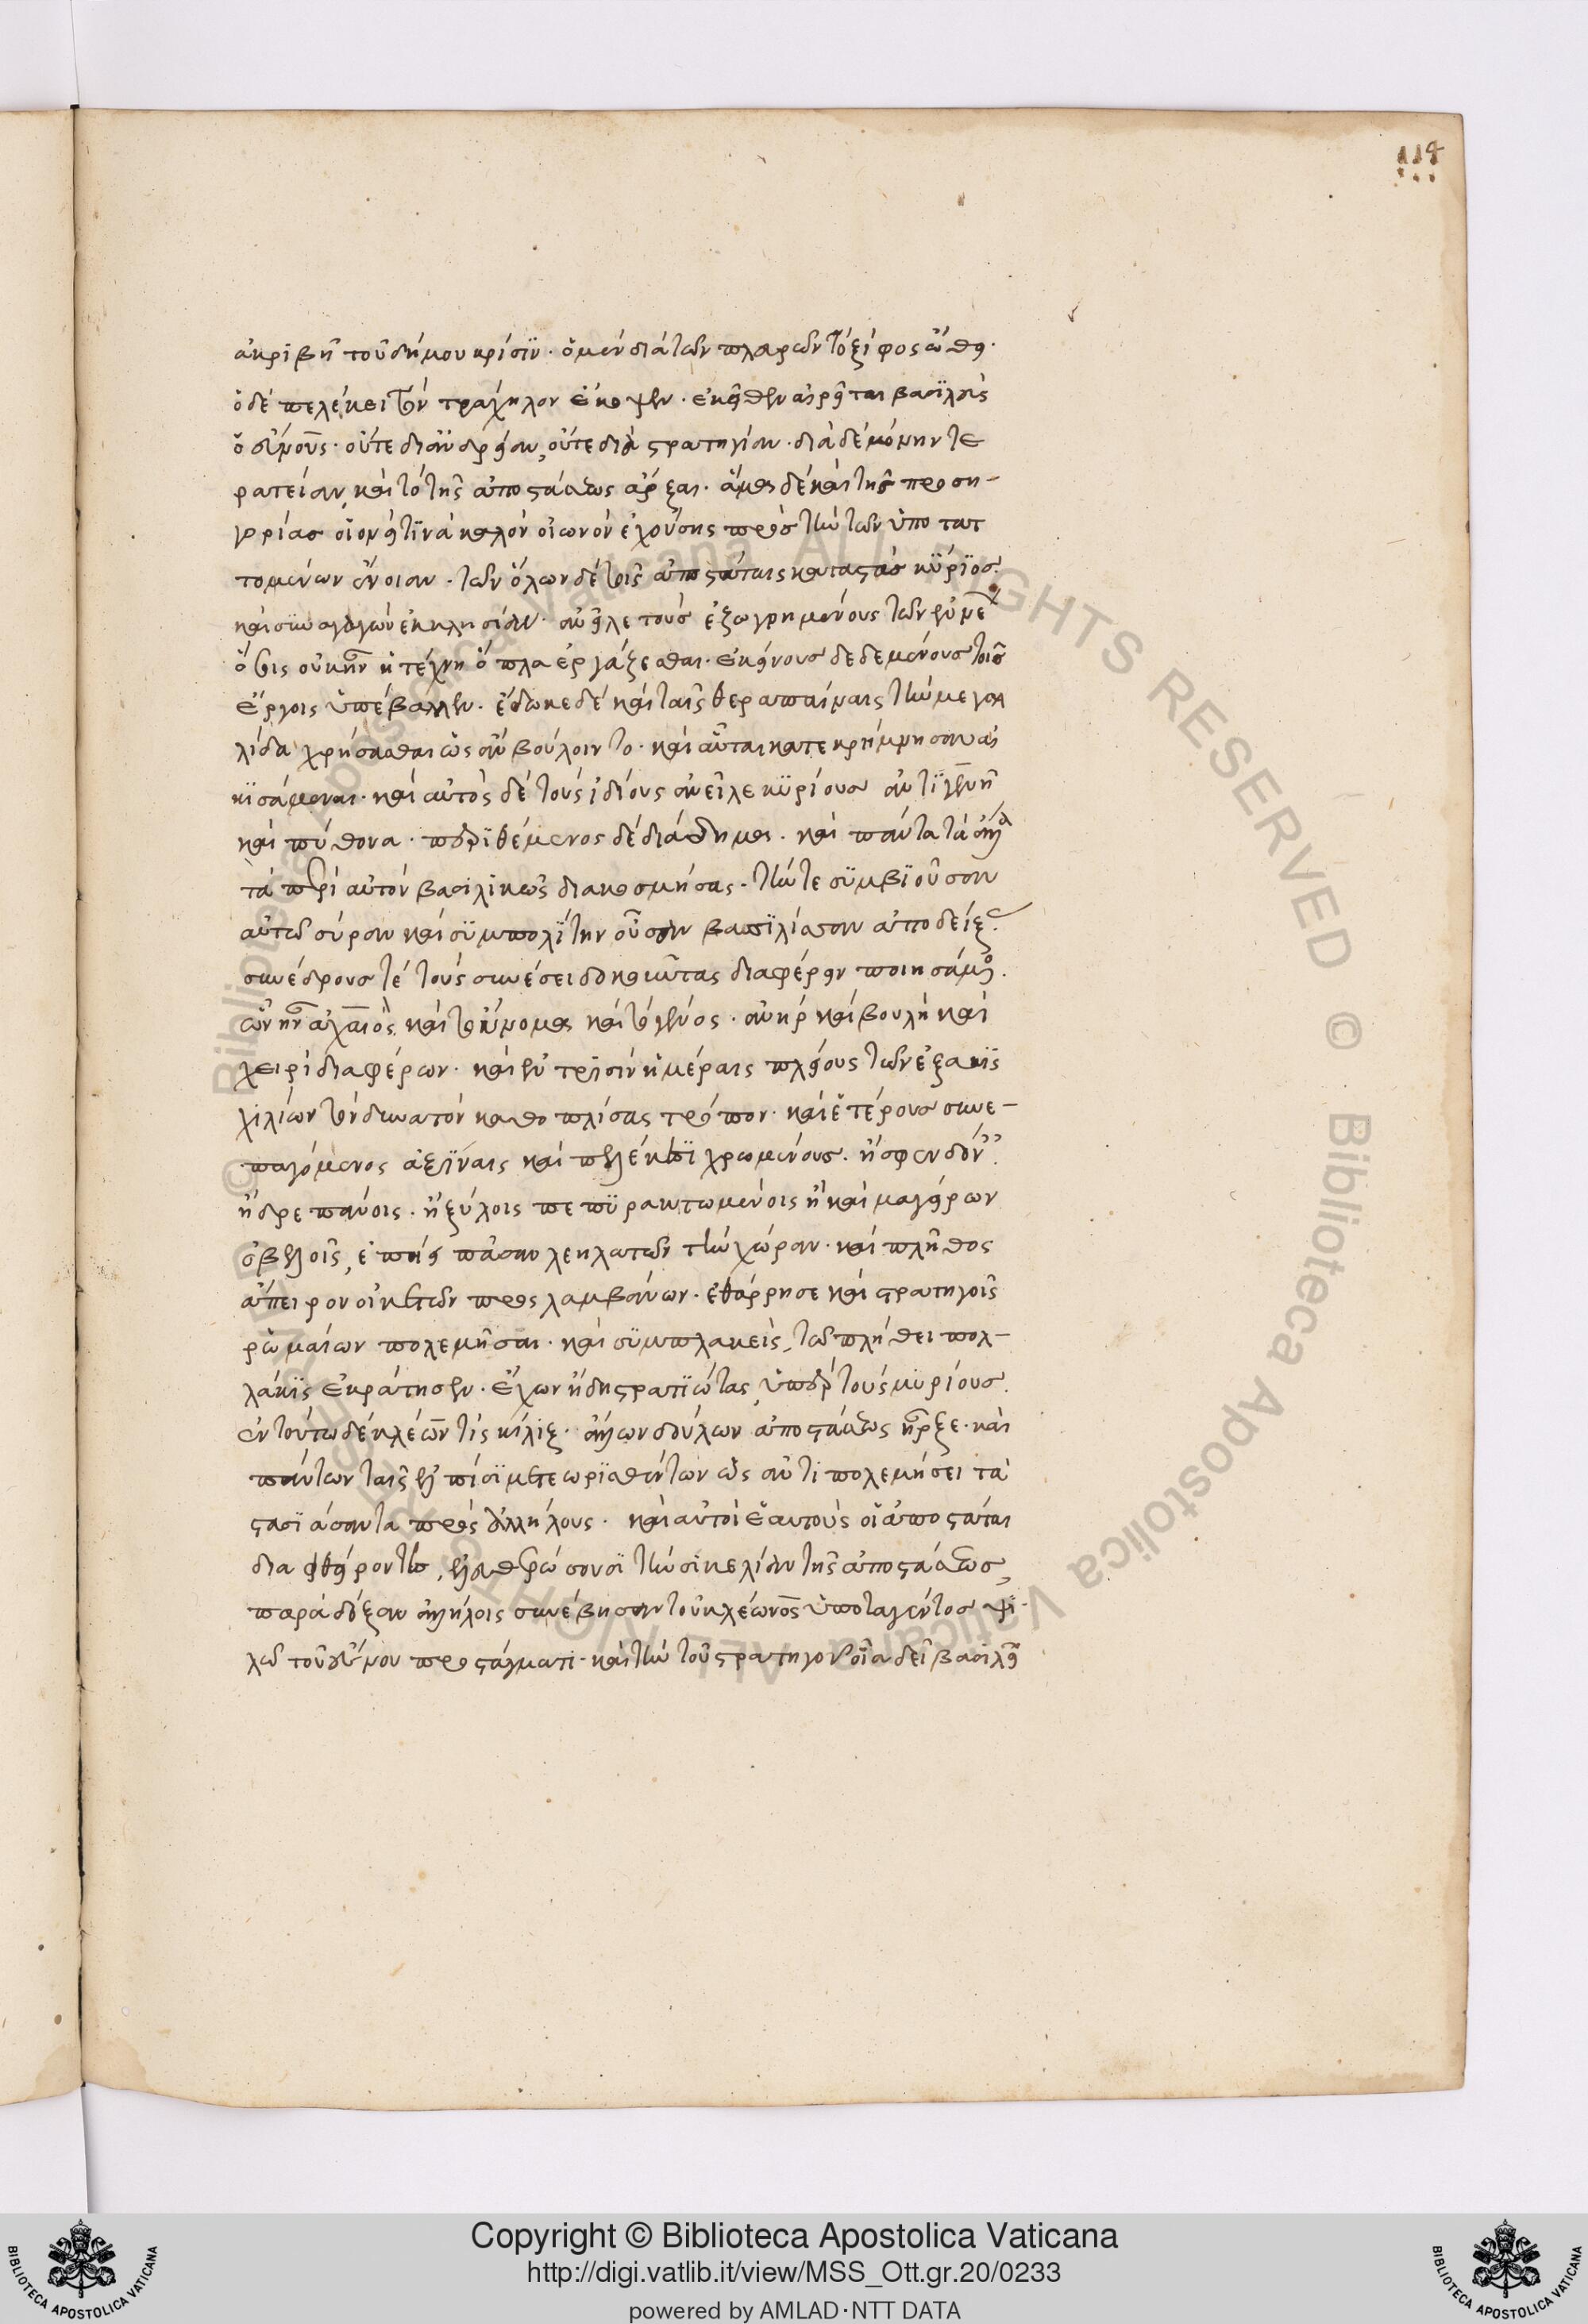 118
ἀκριβῆ τοῦ δήμου κρίσϊν· ὁ μὲν διὰ τῶν πλευρῶν τὸ ξίφος ὦθει·
ὁ δὲ πελέκει τὸν τράχηλον ἔκοψεν· ἐκεῖθεν αἱρεῖται βασϊλεὺς
ὁ εὔνους· οὔτε δι' ἀνδρείαν, οὔτε διὰ στρατηγίαν· διὰ δὲ μόνην τε
ρατείαν, καὶ τὸ τῆς ἀποστάσεως ἄρξαι· ἅμα δὲ καὶ τῆς προση-
γορίας οἱονεί τϊνα καλὸν οἰωνὸν ἐχούσης πρὸς τὴν τῶν ὑποτατ
τομένων εὔνοιαν· τῶν ὅλων δὲ τοῖς ἀποστάταις καταστὰς κύριος·
καὶ συναγαγὼν ἐκκλησίαν· ἀνεῖλε τοὺς ἐζωγρημένους τῶν
οἷς οὐκ ἦν ἡ τέχνη ὅπλα ἐργάζεσθαι· ἐκείνους δεδεμένους τοῖς
ἔργοις ὑπέβαλλεν· ἔδωκε δὲ καὶ ταῖς θεραπαίναις τὴν μεγαλ
λίδα χρήσασθαι ὡς ἂν βούλοιντο· καὶ αὗται κατεκρήμνησαν αἰ
κϊσάμεναι· καὶ αὐτὸς δὲ τοὺς ἰδίους ἀνεῖλε κυρίους ἀντϊγένη
καὶ πύθωνα· περϊθέμενος δὲ διάδημα· καὶ πάντα τὰ ἄλλα
τὰ περὶ αὐτὸν βασιλικῶς διακοσμήσας· τήν τε συμβϊοῦσαν
αὐτῶ σύραν καὶ συμπολϊτην οὖσαν βασϊλίασαν ἀποδείξας
συνέδρους τὲ τοὺς συνέσει δοκοῦντας διαφέρειν ποιησάμενος·
ὧν ἦν ἀχαιὸς, καὶ τοὔνομα καὶ τὸ γένος· ἀνὴρ καὶ βουλῆ καὶ
χειρὶ διαφέρων· καὶ ἐν τρϊσὶν ἡμέραις πλείους τῶν ἑξακϊσ
χιλίων τὸν δυνατὸν καθοπλίσας τρόπον· καὶ ἑτέρους συνε-
παγόμενος ἀξϊναις καὶ πελέκεσϊ χρωμένους· ἢ σφενδόναις
ἢ δρεπάνοις· ἢ ξύλοις πεπυρακτωμένοις ἢ καὶ μαγείρων
ὀβελοῖς, ἐπήει πᾶσαν λεηλατῶν τὴν χώραν· καὶ πλῆθος
ἄπειρον οἰκετῶν προσλαμβάνων· ἐθάρρησε καὶ στρατηγοῖς
ῥωμαίων πολεμῆσαι· καὶ συμπλακεὶς, τῶ πλήθει πολ-
λάκϊς ἐκράτησεν· ἔχων ἤδη στρατϊώτας, ὑπὲρ τοὺς μυρίους·
ἐν τούτω δὲ κλέων τίς κίλιξ· ἄλλων δούλων ἀποστάσεως ἦρξε· καὶ
πάντων ταῖς ἐλπίσϊ μετεωρϊσθέντων ὡς ἀντιπολεμήσει τὰ
στασϊάσαντα πρὸς ἀλλήλους· καὶ αὐτοὶ ἑαυτοὺς οἱ ἀποστάται
διαφθείροντες, ἐλευθερώσουσϊ τὴν σικελίαν τῆς ἀποστάσεως,
παρὰ δόξαν ἀλλήλοις συνέβησαν τοῦ κλέωνος ὑποταγέντος ψϊ-
λῶ τοῦ εὔνου προστάγματι· καὶ τὴν τοῦ στρατηγοῦ οἷα δεῖ βασιλεῖ
Copyright © Biblioteca Apostolica Vaticana
http://digi.vatlib.it/view/MSS_Ott.gr.20/0233
powered by AMLAD·NTT DATA